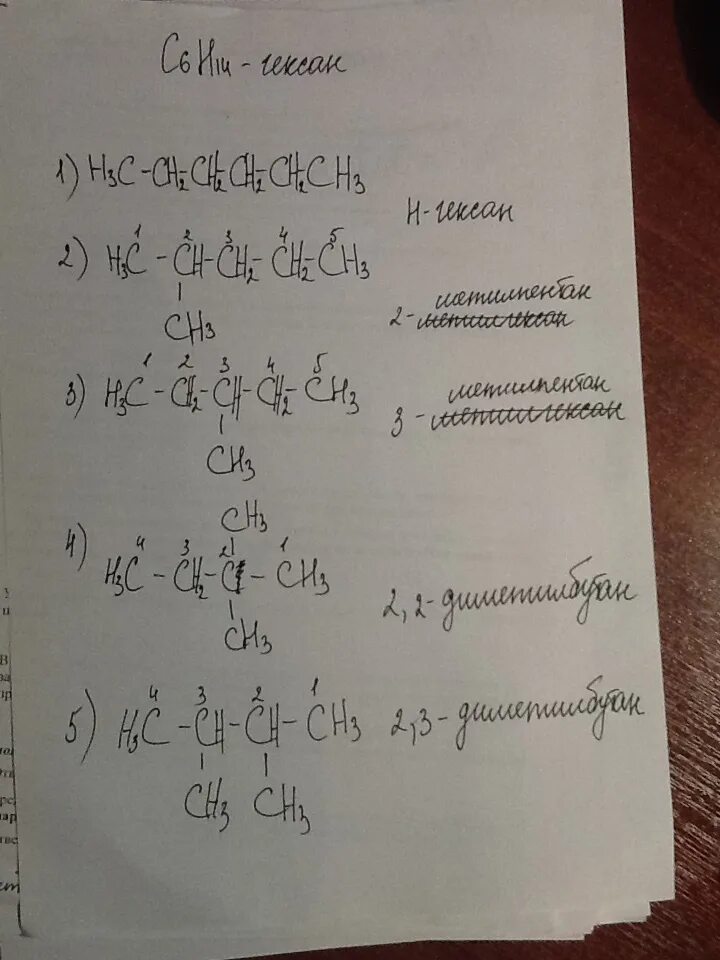 C6H14 - гексан
1) H3C - CH2 - CH2 - CH2 - CH2 - CH3
н-гексан
1 2 3 4 5
2) H3C - CH - CH2 - CH2 - CH3
CH3
метилпентан
2- метилгексан
1 2 3 4 5
3) H3C - CH2 - CH - CH2 - CH3
CH3
метилпентан
3 - метилгексан
CH3
4 3 2 1
4) H3C - CH2 - C - CH3
CH3
2,2-диметилбутан
4 3 2 1
5) H3C - CH - CH - CH3
CH3 CH3
2,3-диметилбутан